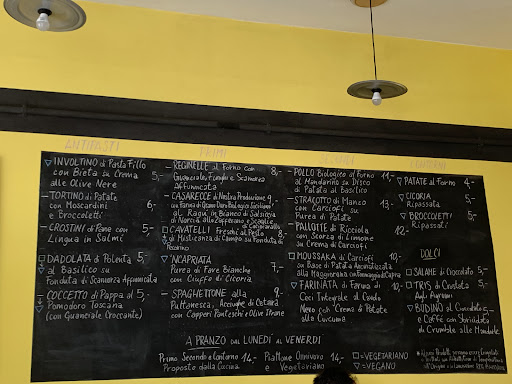 ANTIPASTI
▽ INVOLTINO di Pasta Fillo
con Bieta su Crema 5,-
alle Olive Nere
- TORTINO di Patate
con Moscardini 6,-
e Broccoletti
- CROSTINI di Pane con 5,-
Lingua in Salmì
□ DADOLATA di Polenta 5,-
al Basilico su
Fonduta di Scamorza Affumicata
- COCCETTO di Pappa al 5,-
Pomodoro Toscana
(con Guanciale Croccante)
PRIMI
- REGINELLE al Forno con
Guanciale, Funghi e Scamorza 8,-
Affumicata
- CASARECCE di Nostra Produzione 9,-
al Ragù in Bianco di Salsiccia
□ CAVATELLI Freschi al Pesto 8,-
di Misticanza di Campo su Fonduta di
Pecorino
▽ 'NCAPRIATA 7,-
Purea di Fave Bianche
con Ciuffo di Cicoria
- SPAGHETTONE alla 9,-
Puttanesca, Acciughe di Cetara
con Capperi Panteschi e Olive Itrane
SECONDI
- POLLO Biologico al Forno 11,-
al Mandarino su Disco
di Patata al Basilico
- STRACOTTO di Manzo 13,-
con Carciofi su
Purea di Patate
- PALLOTTE di Ricciola 14,-
con Scorza di Limone
su Crema di Carciofi
□ MOUSSAKA di Carciofi 10,-
su Base di Patata Aromatizzata
alla Maggiorana
▽ FARINATA di Farina di 10,-
Ceci Integrale al Cavolo
Nero con Crema di Patate
alla Curcuma
CONTORNI
▽ PATATE al FORNO 4,-
▽ CICORIA 5,-
Ripassata
▽ BROCCOLETTI 5,-
Ripassati
DOLCI
□ SALAME di Cioccolato 5,-
□ TRIS di Crostata 5,-
Agli Agrumi
▽ BUDINO al Cioccolato 6,-
e Caffè con Sbriciolata
di Crumble alle Mandorle
A PRANZO DAL LUNEDÌ AL VENERDÌ
Primo Secondo e Contorno 14,- Piattone Onnivoro 14,-
Proposto dalla Cucina e Vegetariano
□ = VEGETARIANO
▽ = VEGANO